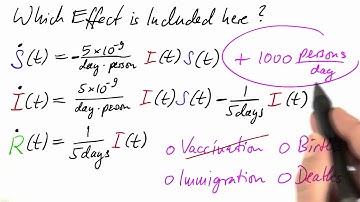 Which Effect is Included here?
Ṡ(t) = - 5×10⁻⁹/day·person I(t) S(t) + 1000 persons/day
İ(t) = 5×10⁻⁹/day·person I(t) S(t) - 1/5days I(t)
Ṙ(t) = 1/5days I(t)
o Vaccination o Births
o Immigration o Deaths